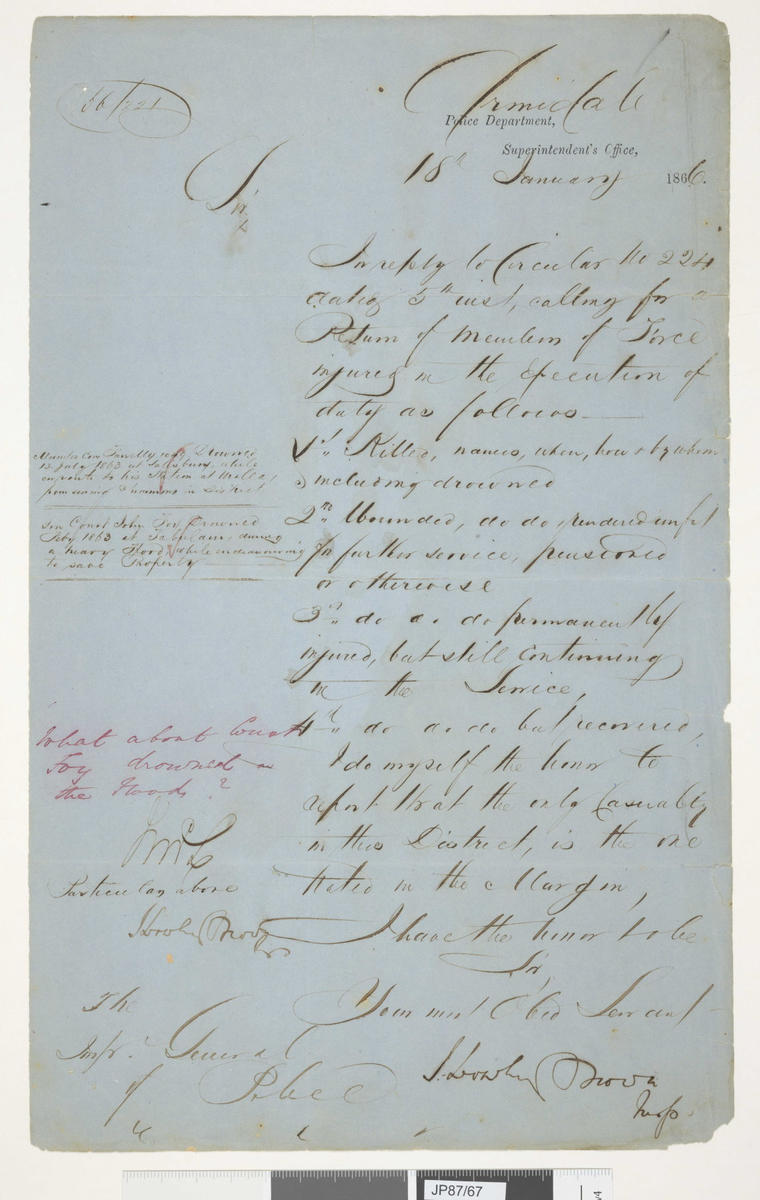 66/221
Armidale
Police Department,
Superintendent's Office,
18th January 1866.
Sir,
In reply to Circular No 224
dated 5th inst, calling for a
Return of Members of Force
injured in the Execution of
duty as follows
1st Killed, names, when, how & by whom
including drowned
2nd Wounded, do do rendered unfit
for further service, pensioned
or otherwise
3rd do do do permanently
injured, but still continuing
in the Service,
4th do do do but recovered,
I do myself the honor to
report that the only Casualty
in this District, is the one
stated in the Margin,
I have the honor to be
Sir,
Your most Obed Servant
J. Brown
Insp
Drowned
13 July 1863 at Salisbury, while
en route to his Station at Walcha,
Summons in District
Sen Const John Foy Drowned
Feby 1863 at during
a heavy Flood, while endeavouring
to save Property
What about Const
Foy drowned in
the Floods?
Particulars above
Brown
The
Inspr. General
of Police
JP87/67